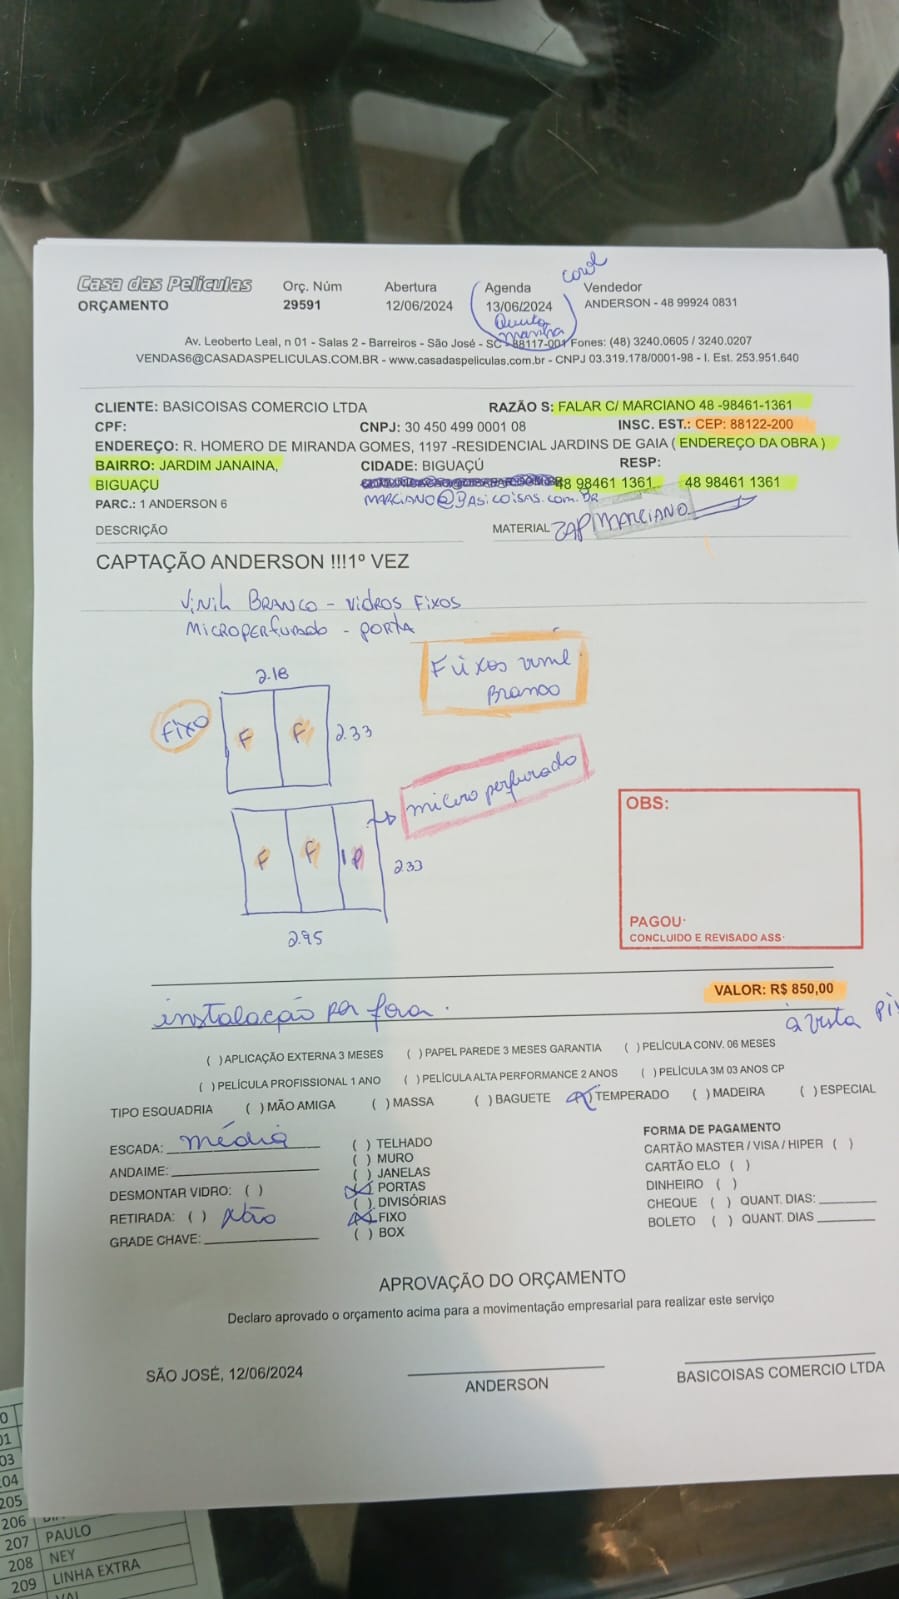 Casa das Películas Orç. Núm Abertura Agenda Carol Vendedor
ORÇAMENTO 29591 12/06/2024 13/06/2024 ANDERSON - 48 99924 0831
Quinta
Av. Leoberto Leal, n 01 - Salas 2 - Barreiros - São José - SC - 88117-001 Fones: (48) 3240.0605 / 3240.0207
VENDAS6@CASADASPELICULAS.COM.BR - www.casadaspeliculas.com.br - CNPJ 03.319.178/0001-98 - I. Est. 253.951.640
CLIENTE: BASICOISAS COMERCIO LTDA RAZÃO S: FALAR C/ MARCIANO 48 -98461-1361
CPF: CNPJ: 30 450 499 0001 08 INSC. EST.: CEP: 88122-200
ENDEREÇO: R. HOMERO DE MIRANDA GOMES, 1197 -RESIDENCIAL JARDINS DE GAIA ( ENDEREÇO DA OBRA )
BAIRRO: JARDIM JANAINA, CIDADE: BIGUAÇÚ RESP:
BIGUAÇU 48 98461 1361. 48 98461 1361
PARC.: 1 ANDERSON 6 MARCIANO@BASICOISAS.COM.BR
DESCRIÇÃO MATERIAL ZAP MARCIANO
CAPTAÇÃO ANDERSON !!!1º VEZ
VINIL BRANCO - VIDROS FIXOS
MICROPERFURADO - PORTA
Fixos vinil
Branco
2.18
Fixo F F 2.33
micro perfurado
F F P 2.33
2.95
OBS:
PAGOU:
CONCLUIDO E REVISADO ASS:
VALOR: R$ 850,00
instalação por fora.
à vista pi
( ) APLICAÇÃO EXTERNA 3 MESES ( ) PAPEL PAREDE 3 MESES GARANTIA ( ) PELÍCULA CONV. 06 MESES
( ) PELÍCULA PROFISSIONAL 1 ANO ( ) PELÍCULA ALTA PERFORMANCE 2 ANOS ( ) PELÍCULA 3M 03 ANOS CP
TIPO ESQUADRIA ( ) MÃO AMIGA ( ) MASSA ( ) BAGUETE (X) TEMPERADO ( ) MADEIRA ( ) ESPECIAL
ESCADA: média ( ) TELHADO FORMA DE PAGAMENTO
( ) MURO CARTÃO MASTER / VISA / HIPER ( )
ANDAIME: ( ) JANELAS CARTÃO ELO ( )
DESMONTAR VIDRO: ( ) (X) PORTAS DINHEIRO ( )
( ) DIVISÓRIAS CHEQUE ( ) QUANT. DIAS:
RETIRADA: ( ) Não (X) FIXO BOLETO ( ) QUANT. DIAS
GRADE CHAVE: ( ) BOX
APROVAÇÃO DO ORÇAMENTO
Declaro aprovado o orçamento acima para a movimentação empresarial para realizar este serviço
SÃO JOSÉ, 12/06/2024
ANDERSON BASICOISAS COMERCIO LTDA
0
01
03
04
205
206
207 PAULO
208 NEY
209 LINHA EXTRA